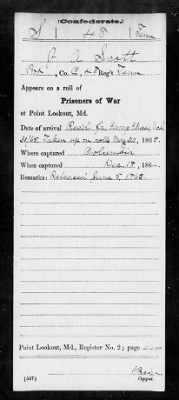 (Confederate.)
S 48 Tenn
J. A. Scott
Pvt, Co. D, 48 Reg't Tenn
Appears on a roll of
Prisoners of War
at Point Lookout, Md.
Date of arrival Recd. fr. Camp Chase,
Taken up on rolls 1865.
Where captured Columbia
When captured Dec. 19, 186
Remarks: Released June 5, 1865
Point Lookout, Md., Register No. 2; page
(557) Copyist.